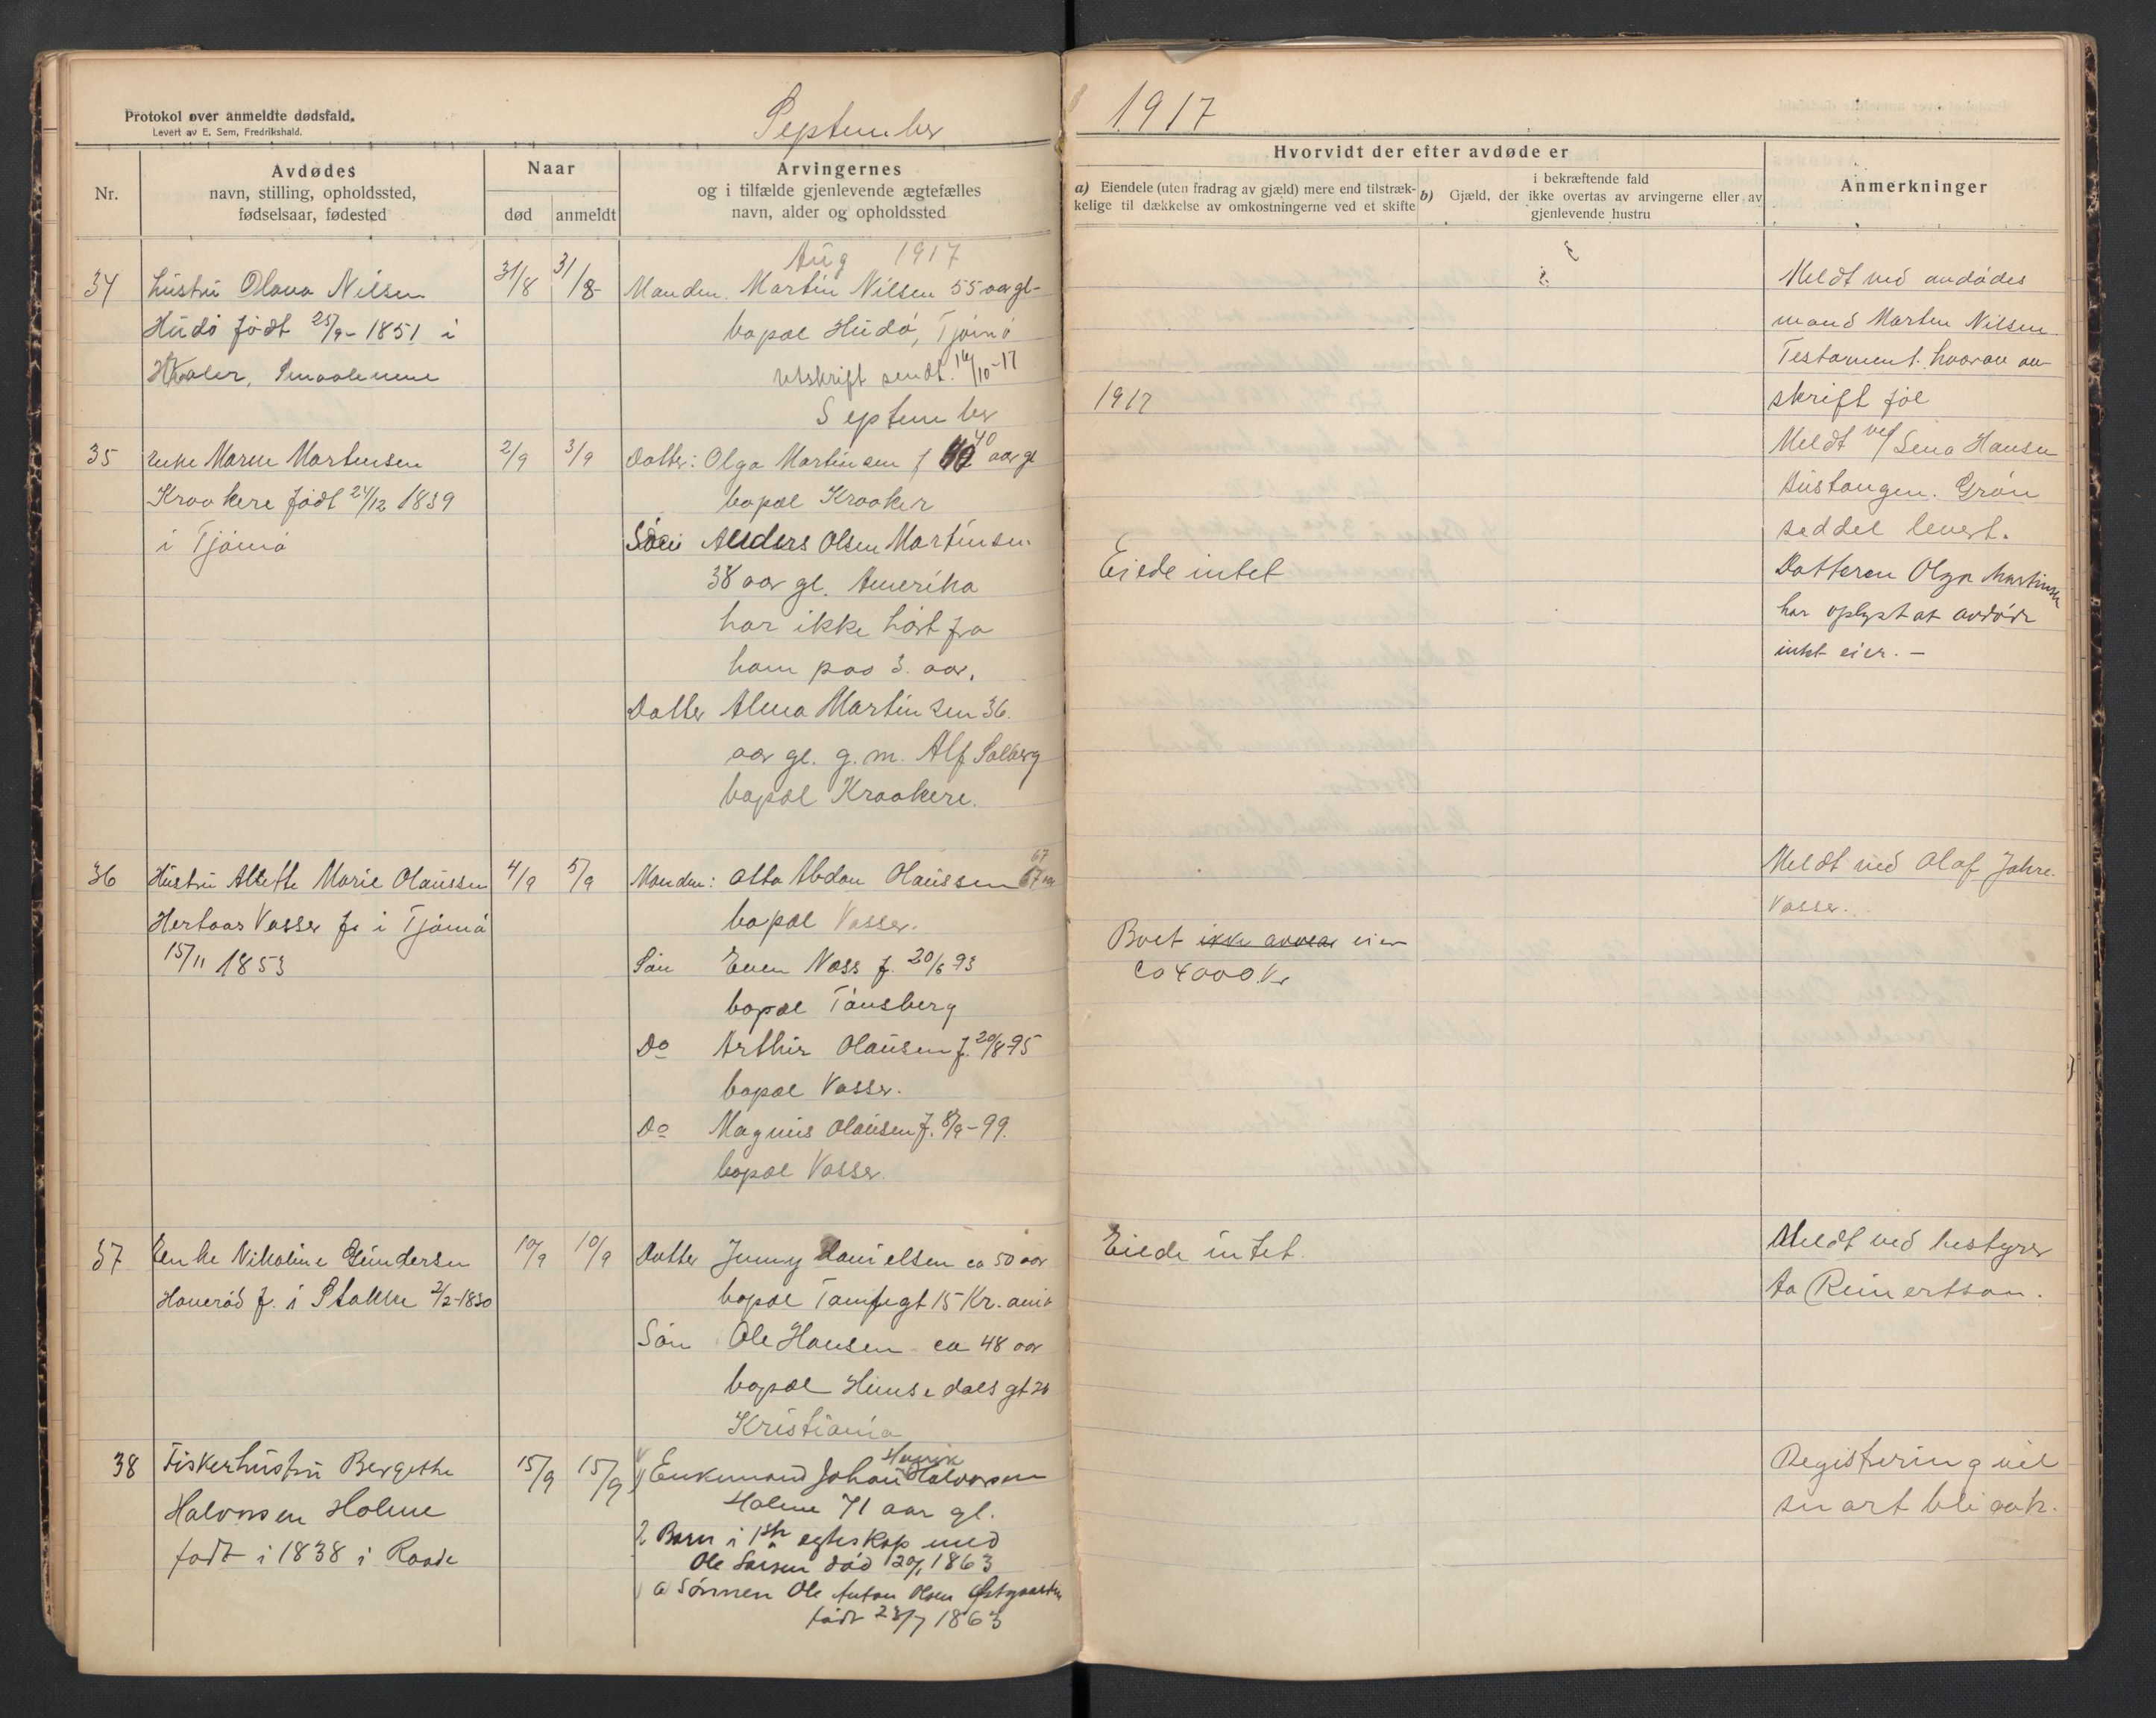 Protokol over anmeldte dødsfald.
Levert av E. Sem, Fredrikshald.
September
1917
Nr.
Avdødes
navn, stilling, opholdssted,
fødselsaar, fødested
Naar
død
anmeldt
Arvingernes
og i tilfælde gjenlevende ægtefælles
navn, alder og opholdssted
Hvorvidt der efter avdøde er
a) Eiendele (uten fradrag av gjæld) mere end tilstræk-
kelige til dækkelse av omkostningerne ved et skifte
i bekræftende fald
b) Gjæld, der ikke overtas av arvingerne eller av
gjenlevende hustru
Anmerkninger
Aug 1917
34 Hustru Olava Nilsen 31/8 31/8 Manden. Martin Nilsen 55 aar gl-
Hudø født 25/9-1851 i bopæl Hudø, Tjømø
Hvaler, Smaalenene utskrift sendt. 16/10-17
Meldt ved avdødes
mand Martin Nilsen
Testament. hvorav av-
skrift føl
September
1917
35 Enke Maren Martinsen 2/9 3/9 Datter: Olga Martinsen f 40 aar gl
Kraakere født 24/12 1839 bopæl Kraaker
i Tjømø Søn Anders Olsen Martinsen
38 aar gl. Amerika
har ikke hørt fra
ham paa 3. aar.
Datter Alma Martinsen 36.
aar gl. g.m. Alf Solberg
bopæl Kraakere.
Eiede intet
Meldt ved Lena Hansen
Bustangen. Grøn
seddel levert.
Datteren Olga Martinsen
har oplyst at avdøde
intet eier. -
36 Hustru Alette Marie Olaussen 4/9 5/9 Manden: Otto Abdon Olaussen 67 aar
67
Hertaas Vasser f. i Tjømø bopæl Vasser.
15/11 1853 Søn Even Næss f. 20/6 93
bopæl Tønsberg
Do Arthur Olausen f. 20/8-95
bopæl Vasser.
Do Magnus Olausen f. 8/9-99.
bopæl Vasser.
Boet ikke eier
ca 4000 Kr
Meldt ved Olaf Jahre.
Vasser.
37 Enke Nikoline Gundersen 10/9 10/9 Datter Jenny Danielsen ca 50 aar
Haverød f. i Stokke 2/2-1830 bopæl 15 Kr.
Søn Ole Hansen ca 48 aar
bopæl gt 26
Kristiania
Eiede intet.
Meldt ved bestyrer
Aa Reinertson.
38 Fiskerhustru Bergethe 15/9 15/9 1) Enkemand Johan Henrik Halvorsen
Halvorsen Holme Holme 71 aar gl.
født i 1838 i Raade 2 Barn i 1ste egteskap med
Ole Larsen død 20/1 1863
a Sønnen Ole Anton Olsen Østgaarden
født 23/7 1863
Registering vil
snart bli avh.